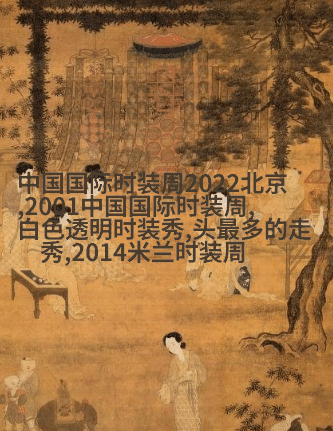 中国国际时装周2022北京
,2001中国国际时装周,
白色透明时装秀,头最多的走
秀,2014米兰时装周